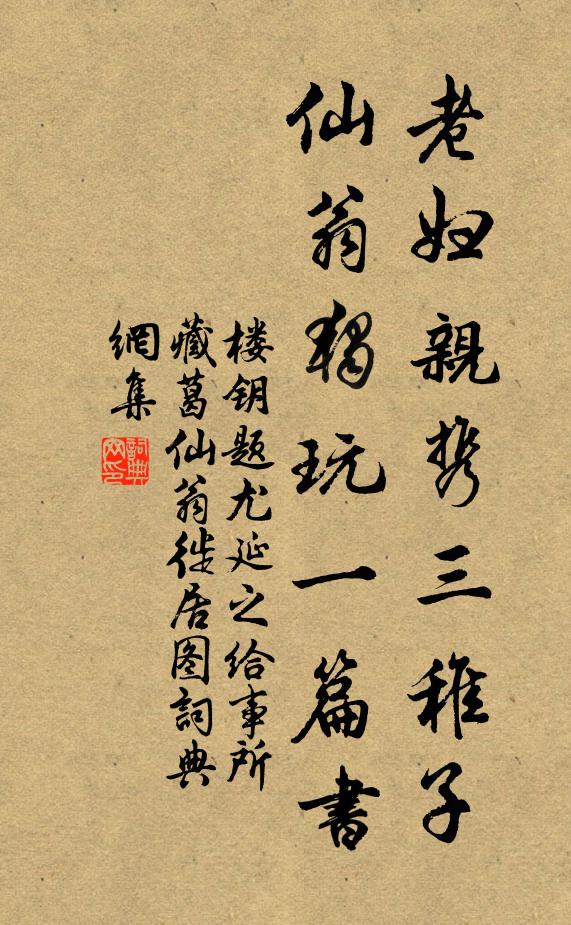 老妇親携三稚子
仙翁独玩一篇書
楼钥题尤延之给事所
藏葛仙翁徙居图詞典
網集
詞典網印